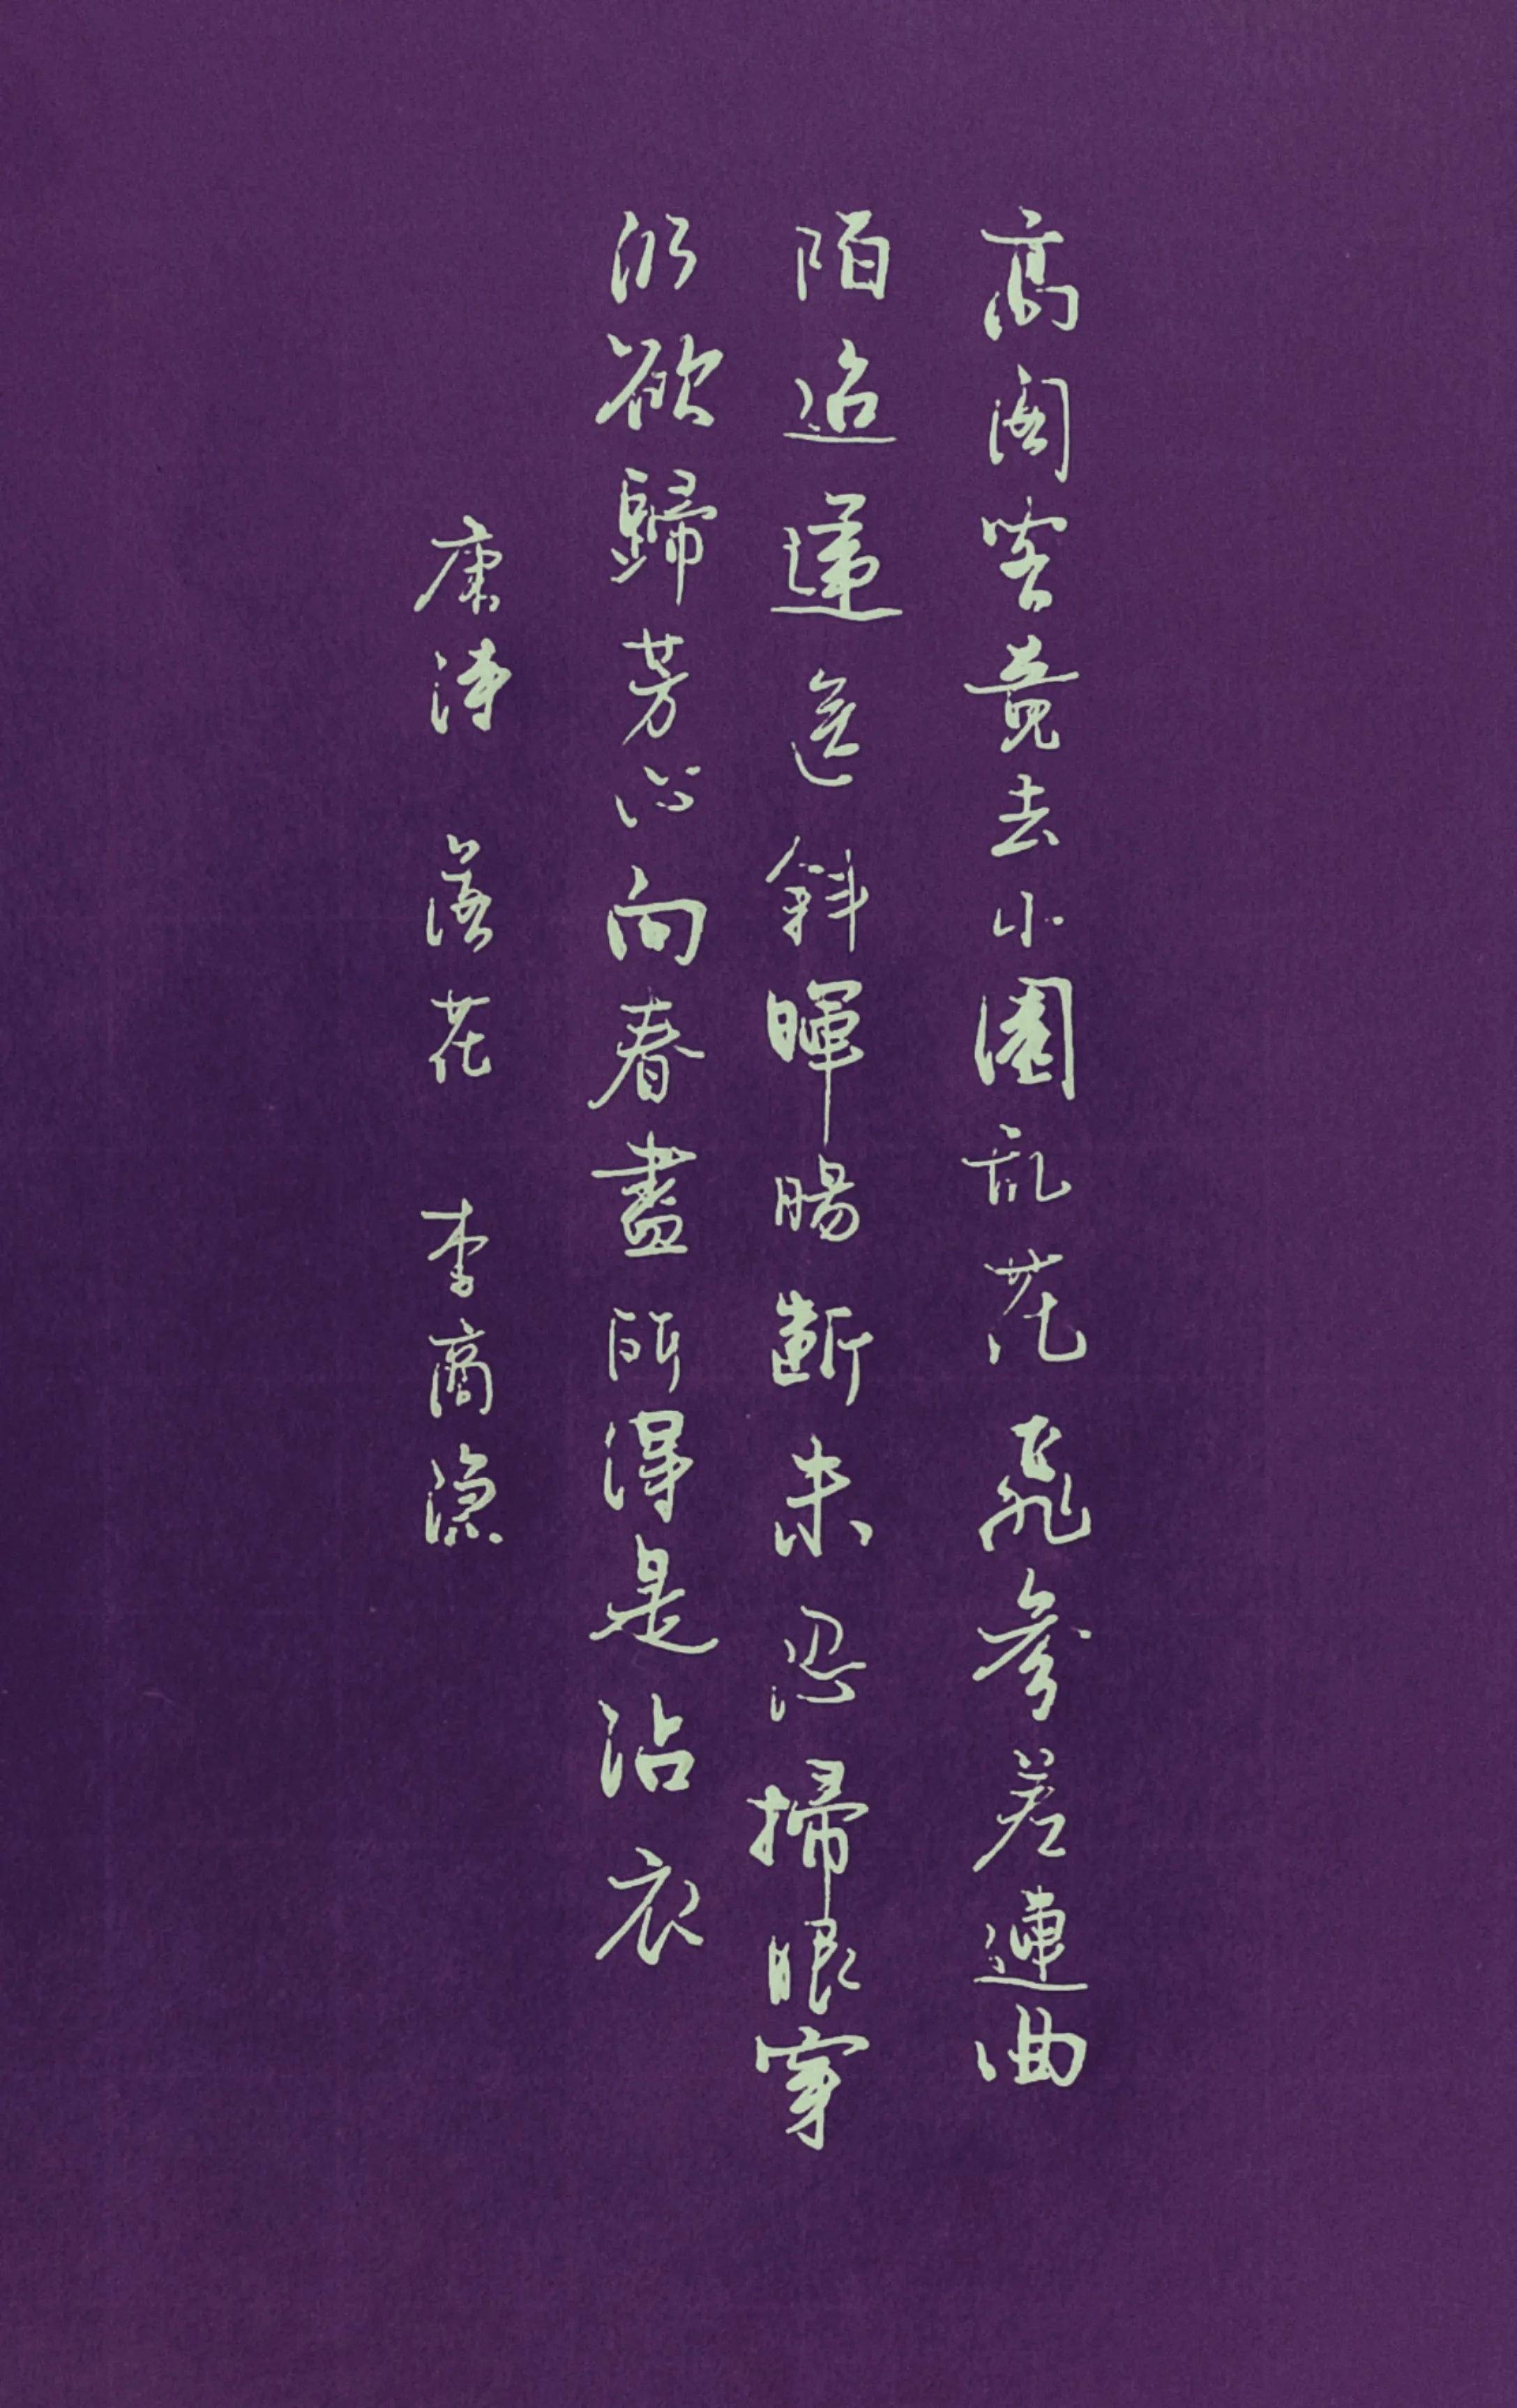 高阁客竟去小園乱花飛參差連曲
陌迢遞送斜暉腸斷未忍掃眼穿
仍欲歸芳心向春盡所得是沾衣
唐诗 落花 李商隐